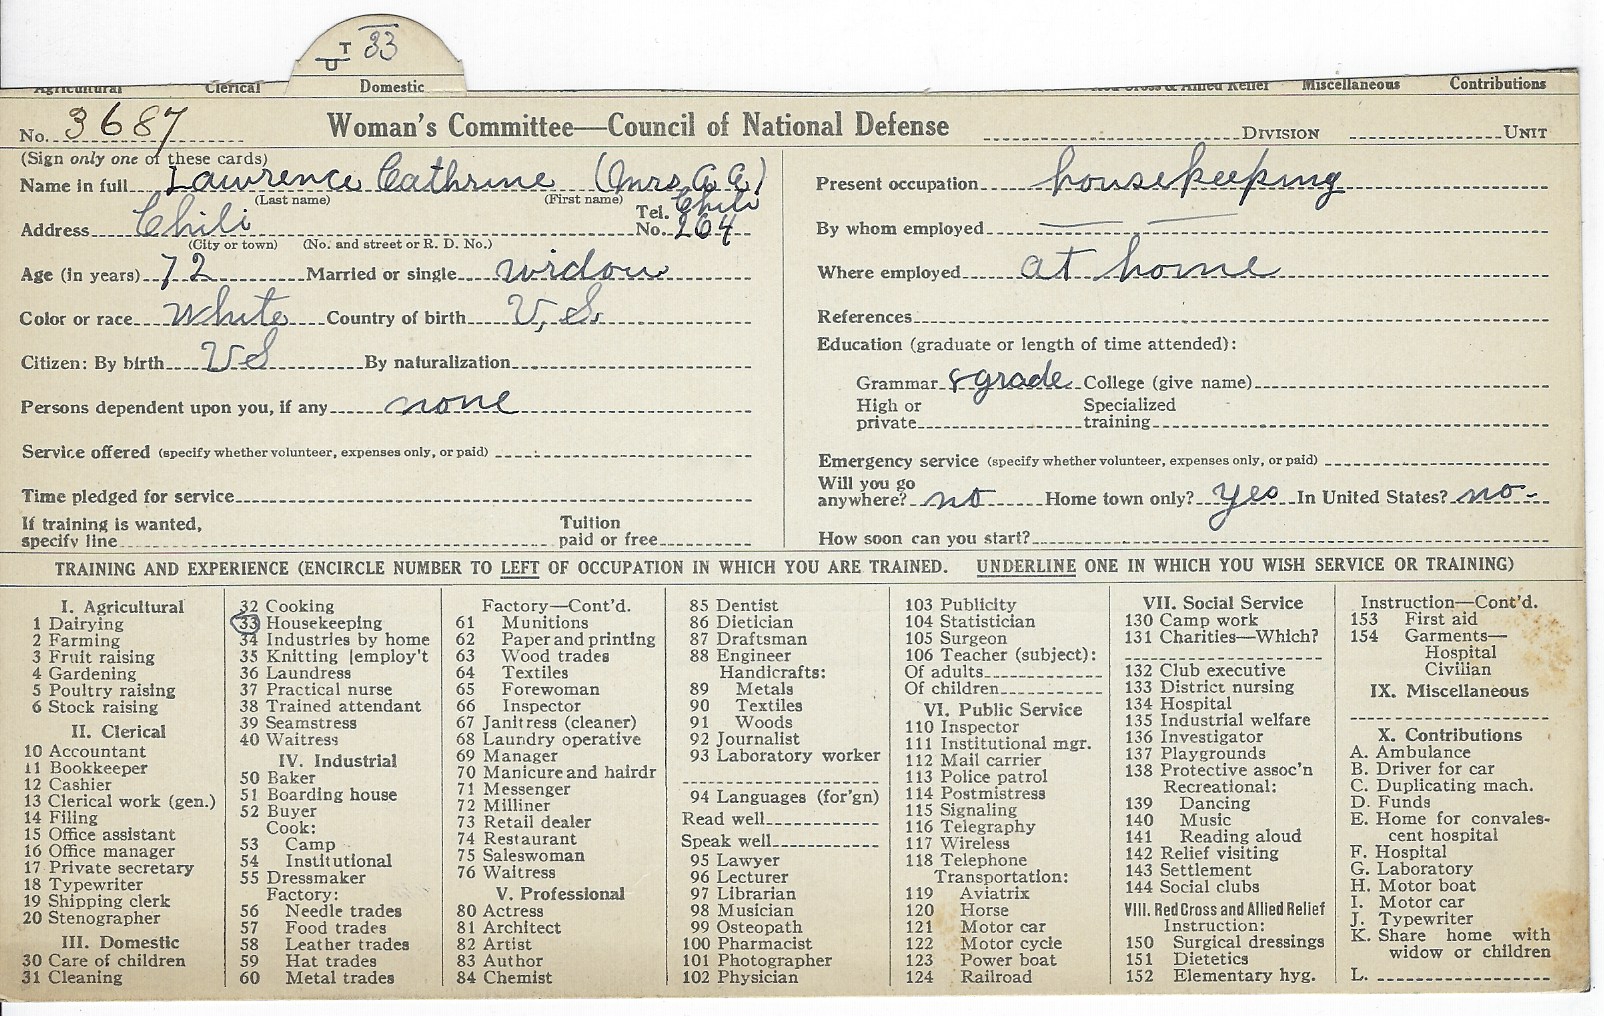 T
U 33
Agricultural Clerical Domestic Red Cross & Allied Relief Miscellaneous Contributions
No. 3687 Woman's Committee—Council of National Defense DIVISION UNIT
(Sign only one of these cards)
Name in full Lawrence Cathrine (Mrs. A A)
(Last name) (First name)
Address Chili Tel. No. Chili 264
(City or town) (No. and street or R. D. No.)
Age (in years) 72 Married or single widow
Color or race White Country of birth U.S.
Citizen: By birth U S By naturalization
Persons dependent upon you, if any none
Service offered (specify whether volunteer, expenses only, or paid)
Time pledged for service
If training is wanted, specify line Tuition paid or free
Present occupation housekeeping
By whom employed
Where employed at home
References
Education (graduate or length of time attended):
Grammar 8 grade College (give name)
High or private Specialized training
Emergency service (specify whether volunteer, expenses only, or paid)
Will you go anywhere? no Home town only? yes In United States? no
How soon can you start?
TRAINING AND EXPERIENCE (ENCIRCLE NUMBER TO LEFT OF OCCUPATION IN WHICH YOU ARE TRAINED. UNDERLINE ONE IN WHICH YOU WISH SERVICE OR TRAINING)
I. Agricultural
1 Dairying
2 Farming
3 Fruit raising
4 Gardening
5 Poultry raising
6 Stock raising
II. Clerical
10 Accountant
11 Bookkeeper
12 Cashier
13 Clerical work (gen.)
14 Filing
15 Office assistant
16 Office manager
17 Private secretary
18 Typewriter
19 Shipping clerk
20 Stenographer
III. Domestic
30 Care of children
31 Cleaning
32 Cooking
33 Housekeeping
34 Industries by home
35 Knitting [employ't
36 Laundress
37 Practical nurse
38 Trained attendant
39 Seamstress
40 Waitress
IV. Industrial
50 Baker
51 Boarding house
52 Buyer
Cook:
53 Camp
54 Institutional
55 Dressmaker
Factory:
56 Needle trades
57 Food trades
58 Leather trades
59 Hat trades
60 Metal trades
Factory—Cont'd.
61 Munitions
62 Paper and printing
63 Wood trades
64 Textiles
65 Forewoman
66 Inspector
67 Janitress (cleaner)
68 Laundry operative
69 Manager
70 Manicure and hairdr
71 Messenger
72 Milliner
73 Retail dealer
74 Restaurant
75 Saleswoman
76 Waitress
V. Professional
80 Actress
81 Architect
82 Artist
83 Author
84 Chemist
85 Dentist
86 Dietician
87 Draftsman
88 Engineer
Handicrafts:
89 Metals
90 Textiles
91 Woods
92 Journalist
93 Laboratory worker
94 Languages (for'gn)
Read well
Speak well
95 Lawyer
96 Lecturer
97 Librarian
98 Musician
99 Osteopath
100 Pharmacist
101 Photographer
102 Physician
103 Publicity
104 Statistician
105 Surgeon
106 Teacher (subject):
Of adults
Of children
VI. Public Service
110 Inspector
111 Institutional mgr.
112 Mail carrier
113 Police patrol
114 Postmistress
115 Signaling
116 Telegraphy
117 Wireless
118 Telephone
Transportation:
119 Aviatrix
120 Horse
121 Motor car
122 Motor cycle
123 Power boat
124 Railroad
VII. Social Service
130 Camp work
131 Charities—Which?
132 Club executive
133 District nursing
134 Hospital
135 Industrial welfare
136 Investigator
137 Playgrounds
138 Protective assoc'n
Recreational:
139 Dancing
140 Music
141 Reading aloud
142 Relief visiting
143 Settlement
144 Social clubs
VIII. Red Cross and Allied Relief
Instruction:
150 Surgical dressings
151 Dietetics
152 Elementary hyg.
Instruction—Cont'd.
153 First aid
154 Garments—
Hospital
Civilian
IX. Miscellaneous
X. Contributions
A. Ambulance
B. Driver for car
C. Duplicating mach.
D. Funds
E. Home for convales-
cent hospital
F. Hospital
G. Laboratory
H. Motor boat
I. Motor car
J. Typewriter
K. Share home with
widow or children
L.